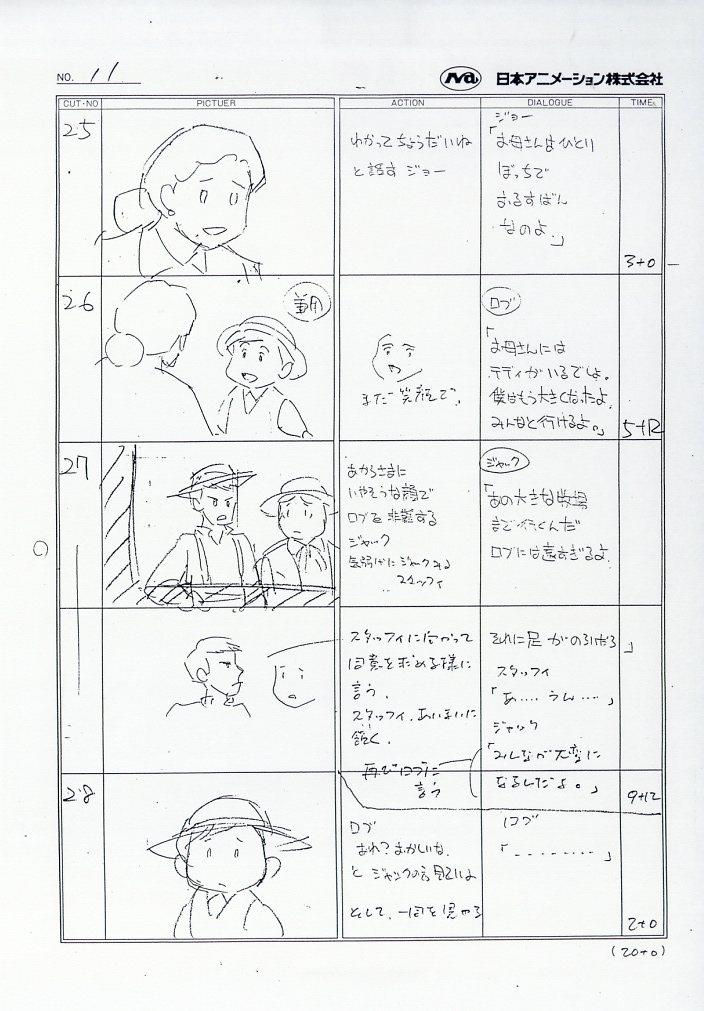 NO. 11
日本アニメーション株式会社
CUT・NO PICTUER ACTION DIALOGUE TIME
25
わかってちょうだいね
と話す ジョー
ジョー
「お母さんはひとり
ぼっちで
おるすばん
なのよ。」
3+0
26
兼用
まだ笑顔で、
ロブ
「お母さんには
テディがいるでしょ。
僕はもう大きくなったよ
みんなと行けるよ。」
5+12
27
あからさまに
いやそうな顔で
ロブを非難する
ジャック
気弱げにジャック見る
スタッフィ
ジャック
「あの大きな牧場
まで行くんだ
ロブには遠すぎるよ
スタッフィに向かって
同意を求める様に
言う。
スタッフィ、あいまいに
頷く。
再びロブに
言う
それに足
」
スタッフィ
「あ‥‥うん‥‥」
ジャック
「みんなが大変に
なるしだよ。」
9+12
28
ロブ
あれ?おかしいな、
と ジャックの
として、一同を見やる
ロブ
「‥‥‥‥」
2+0
(20+0)